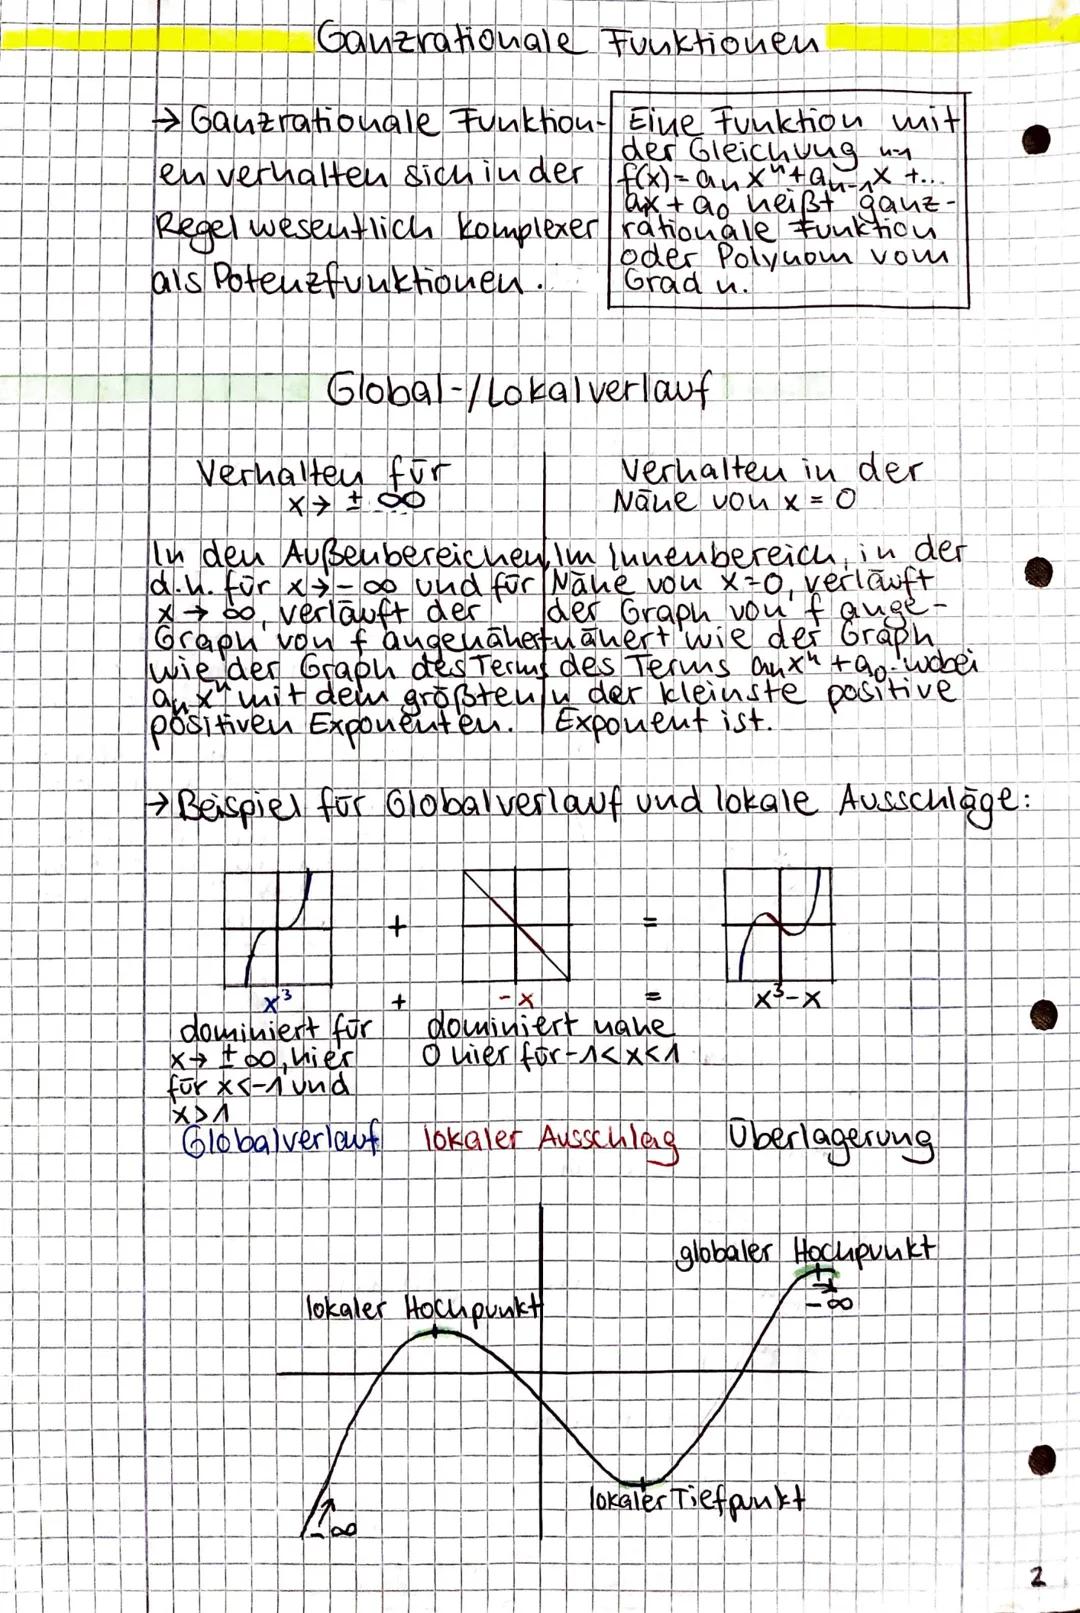 Ganzrationale Funktionen
→ Ganzrationale Funktion-
en verhalten sich in der
Regel wesentlich komplexer
als Potenzfunktionen.
Eine Funktion mit
der Gleichung
f(x) = aₙxⁿ + aₙ₋₁xⁿ⁻¹ + ...
ax + a₀ heißt ganz-
rationale Funktion
oder Polynom vom
Grad n.
Global-/Lokalverlauf
Verhalten für
x → ± ∞
In den Außenbereichen,
d.h. für x → - ∞ und für
x → ∞, verläuft der
Graph von f angenähert
wie der Graph des Terms
aₙxⁿ mit dem größten
positiven Exponenten.
Verhalten in der
Nähe von x = 0
Im Innenbereich, in der
Nähe von x=0, verläuft
der Graph von f ange-
nähert wie der Graph
des Terms aₙxⁿ + a₀, wobei
n der kleinste positive
Exponent ist.
→ Beispiel für Globalverlauf und lokale Ausschläge:
+ =
x³ + -x = x³-x
dominiert für
x → ± ∞, hier
für x<-1 und
x>1
dominiert nahe
0 hier für -1<x<1
Globalverlauf lokaler Ausschlag Überlagerung
globaler Hochpunkt
-∞
lokaler Hochpunkt
lokaler Tiefpunkt
-∞
2